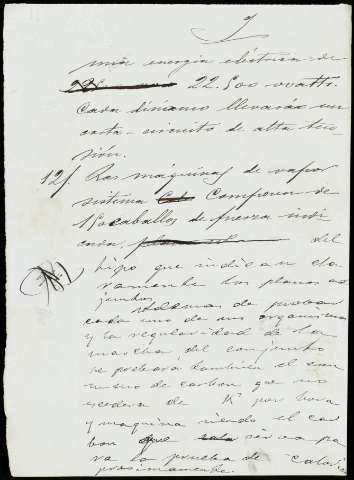 7
nir energia eléctrica de
22.500 watts.
Cada dinamo llevará un
corta-circuito de alta ten
sión.
12/. Las máquinas de vapor
sistema Compoun de
150 caballos de fuerza indi
cada, del
tipo que indican cla
ramente los planos ad
juntos
Además de probar
cada uno de sus organismos
y la regularidad de la
marcha del conjunto
se probará también el con
sumo de carbon que no
escederá de K° por hora
y maquina siendo el car
bon que sirva pa
ra la prueba de calorias
proximamente.